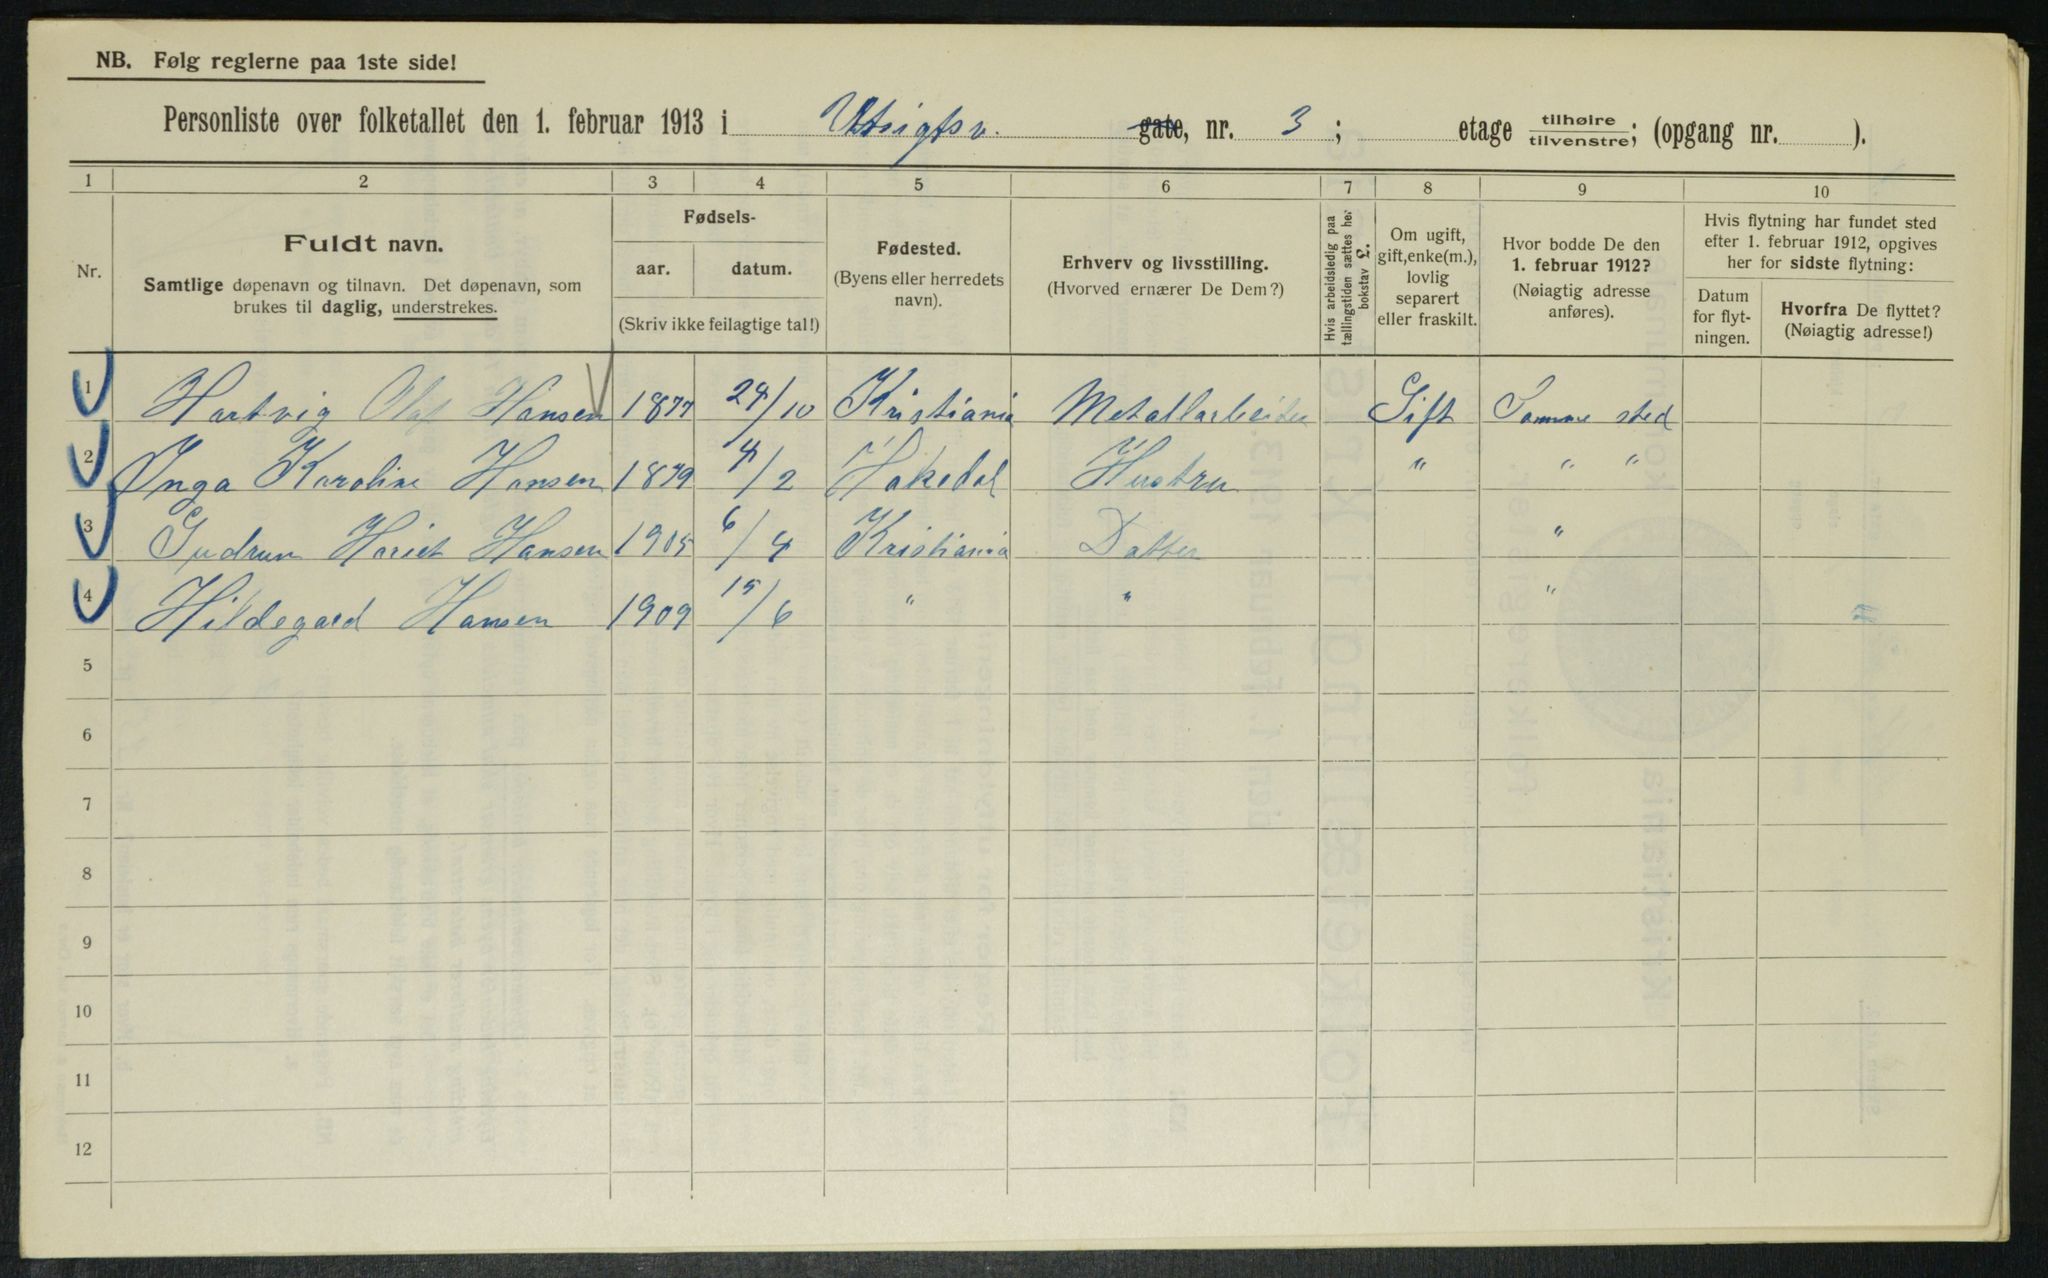 NB. Følg reglerne paa 1ste side!
Personliste over folketallet den 1. februar 1913 i Utsigtsv. gate, nr. 3; etage tilhøire/tilvenstre; (opgang nr. ).
1 2 3 4 5 6 7 8 9 10
Nr.
Fuldt navn.
Samtlige døpenavn og tilnavn. Det døpenavn, som
brukes til daglig, understrekes.
Fødsels-
aar. datum.
(Skriv ikke feilagtige tal!)
Fødested.
(Byens eller herredets
navn).
Erhverv og livsstilling.
(Hvorved ernærer De Dem?)
Hvis arbeidsledig paa
tællingstiden sættes her
bokstav L.
Om ugift,
gift, enke(m.),
lovlig
separert
eller fraskilt.
Hvor bodde De den
1. februar 1912?
(Nøiagtig adresse
anføres).
Hvis flytning har fundet sted
efter 1. februar 1912, opgives
her for sidste flytning:
Datum
for flyt-
ningen.
Hvorfra De flyttet?
(Nøiagtig adresse!)
1 Hartvig Olaf Hansen 1877 24/10 Kristiania Metallarbeider Gift Samme sted
2 Inga Karoline Hansen 1879 4/2 Hakedal Hustru " " "
3 Gudrun Hariet Hansen 1905 6/4 Kristiania Datter "
4 Hildegard Hansen 1909 15/6 " " "
5
6
7
8
9
10
11
12